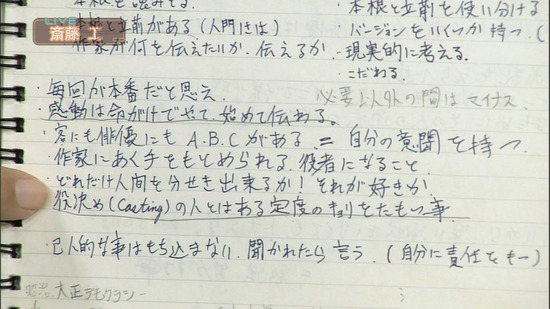 LIVE
斎藤 工
本根と立前がある(人間きは)
作家が何を伝えたいか、伝えるか
・本根と立前を使い分ける
・バージョンをいくつか持つ。(
・現実的に考える。
・こだわる。
・毎回が本番だと思え。
必要以外の間はマイナス
・感動は命がけでやって、始めて伝わる。
・客にも俳優にも A.B.Cがある = 自分の意図を持つ。
・作家にあく手をもとめられる役者になること
・どれだけ人間を分せき出来るか!それが好きか
役決め(Casting)の人とはある定度のキョリをたもつ事
・己人的な事はもち込まない 聞かれたら言う。(自分に責任をもー)
明治、大正デモクラシー